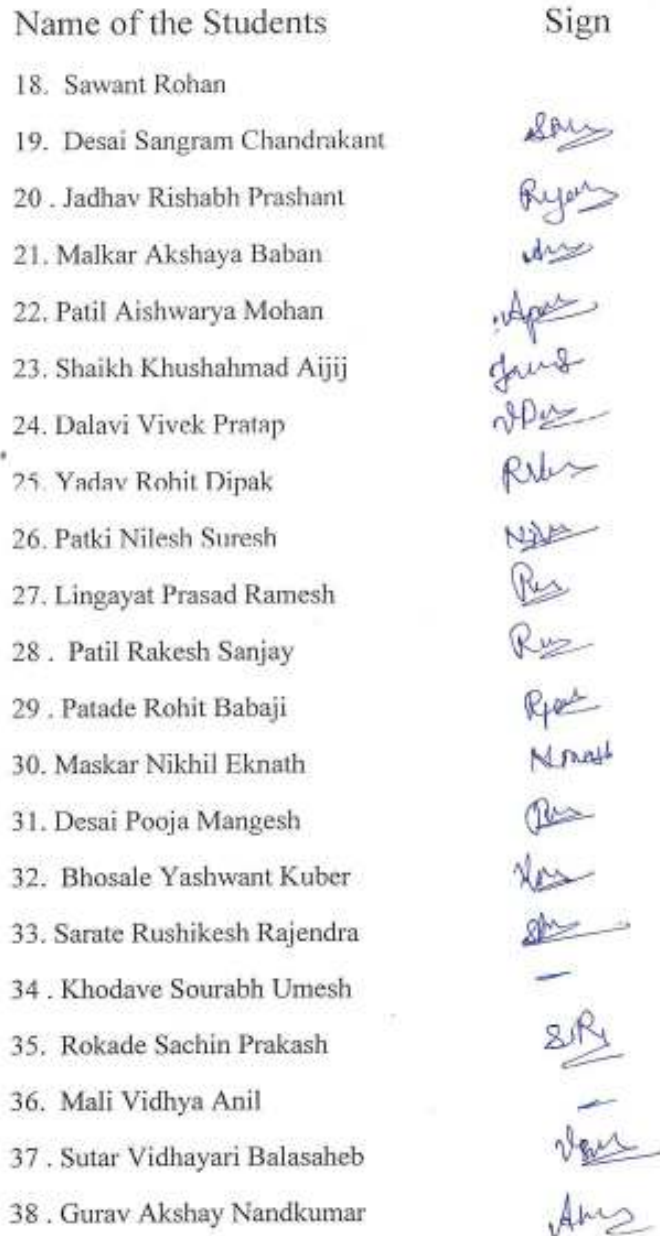 Name of the Students Sign
18. Sawant Rohan
19. Desai Sangram Chandrakant
20 . Jadhav Rishabh Prashant
21. Malkar Akshaya Baban
22. Patil Aishwarya Mohan
23. Shaikh Khushahmad Aijij
24. Dalavi Vivek Pratap
25. Yadav Rohit Dipak
26. Patki Nilesh Suresh
27. Lingayat Prasad Ramesh
28 . Patil Rakesh Sanjay
29 . Patade Rohit Babaji
30. Maskar Nikhil Eknath
31. Desai Pooja Mangesh
32. Bhosale Yashwant Kuber
33. Sarate Rushikesh Rajendra
34 . Khodave Sourabh Umesh –
35. Rokade Sachin Prakash
36. Mali Vidhya Anil –
37 . Sutar Vidhayari Balasaheb
38 . Gurav Akshay Nandkumar